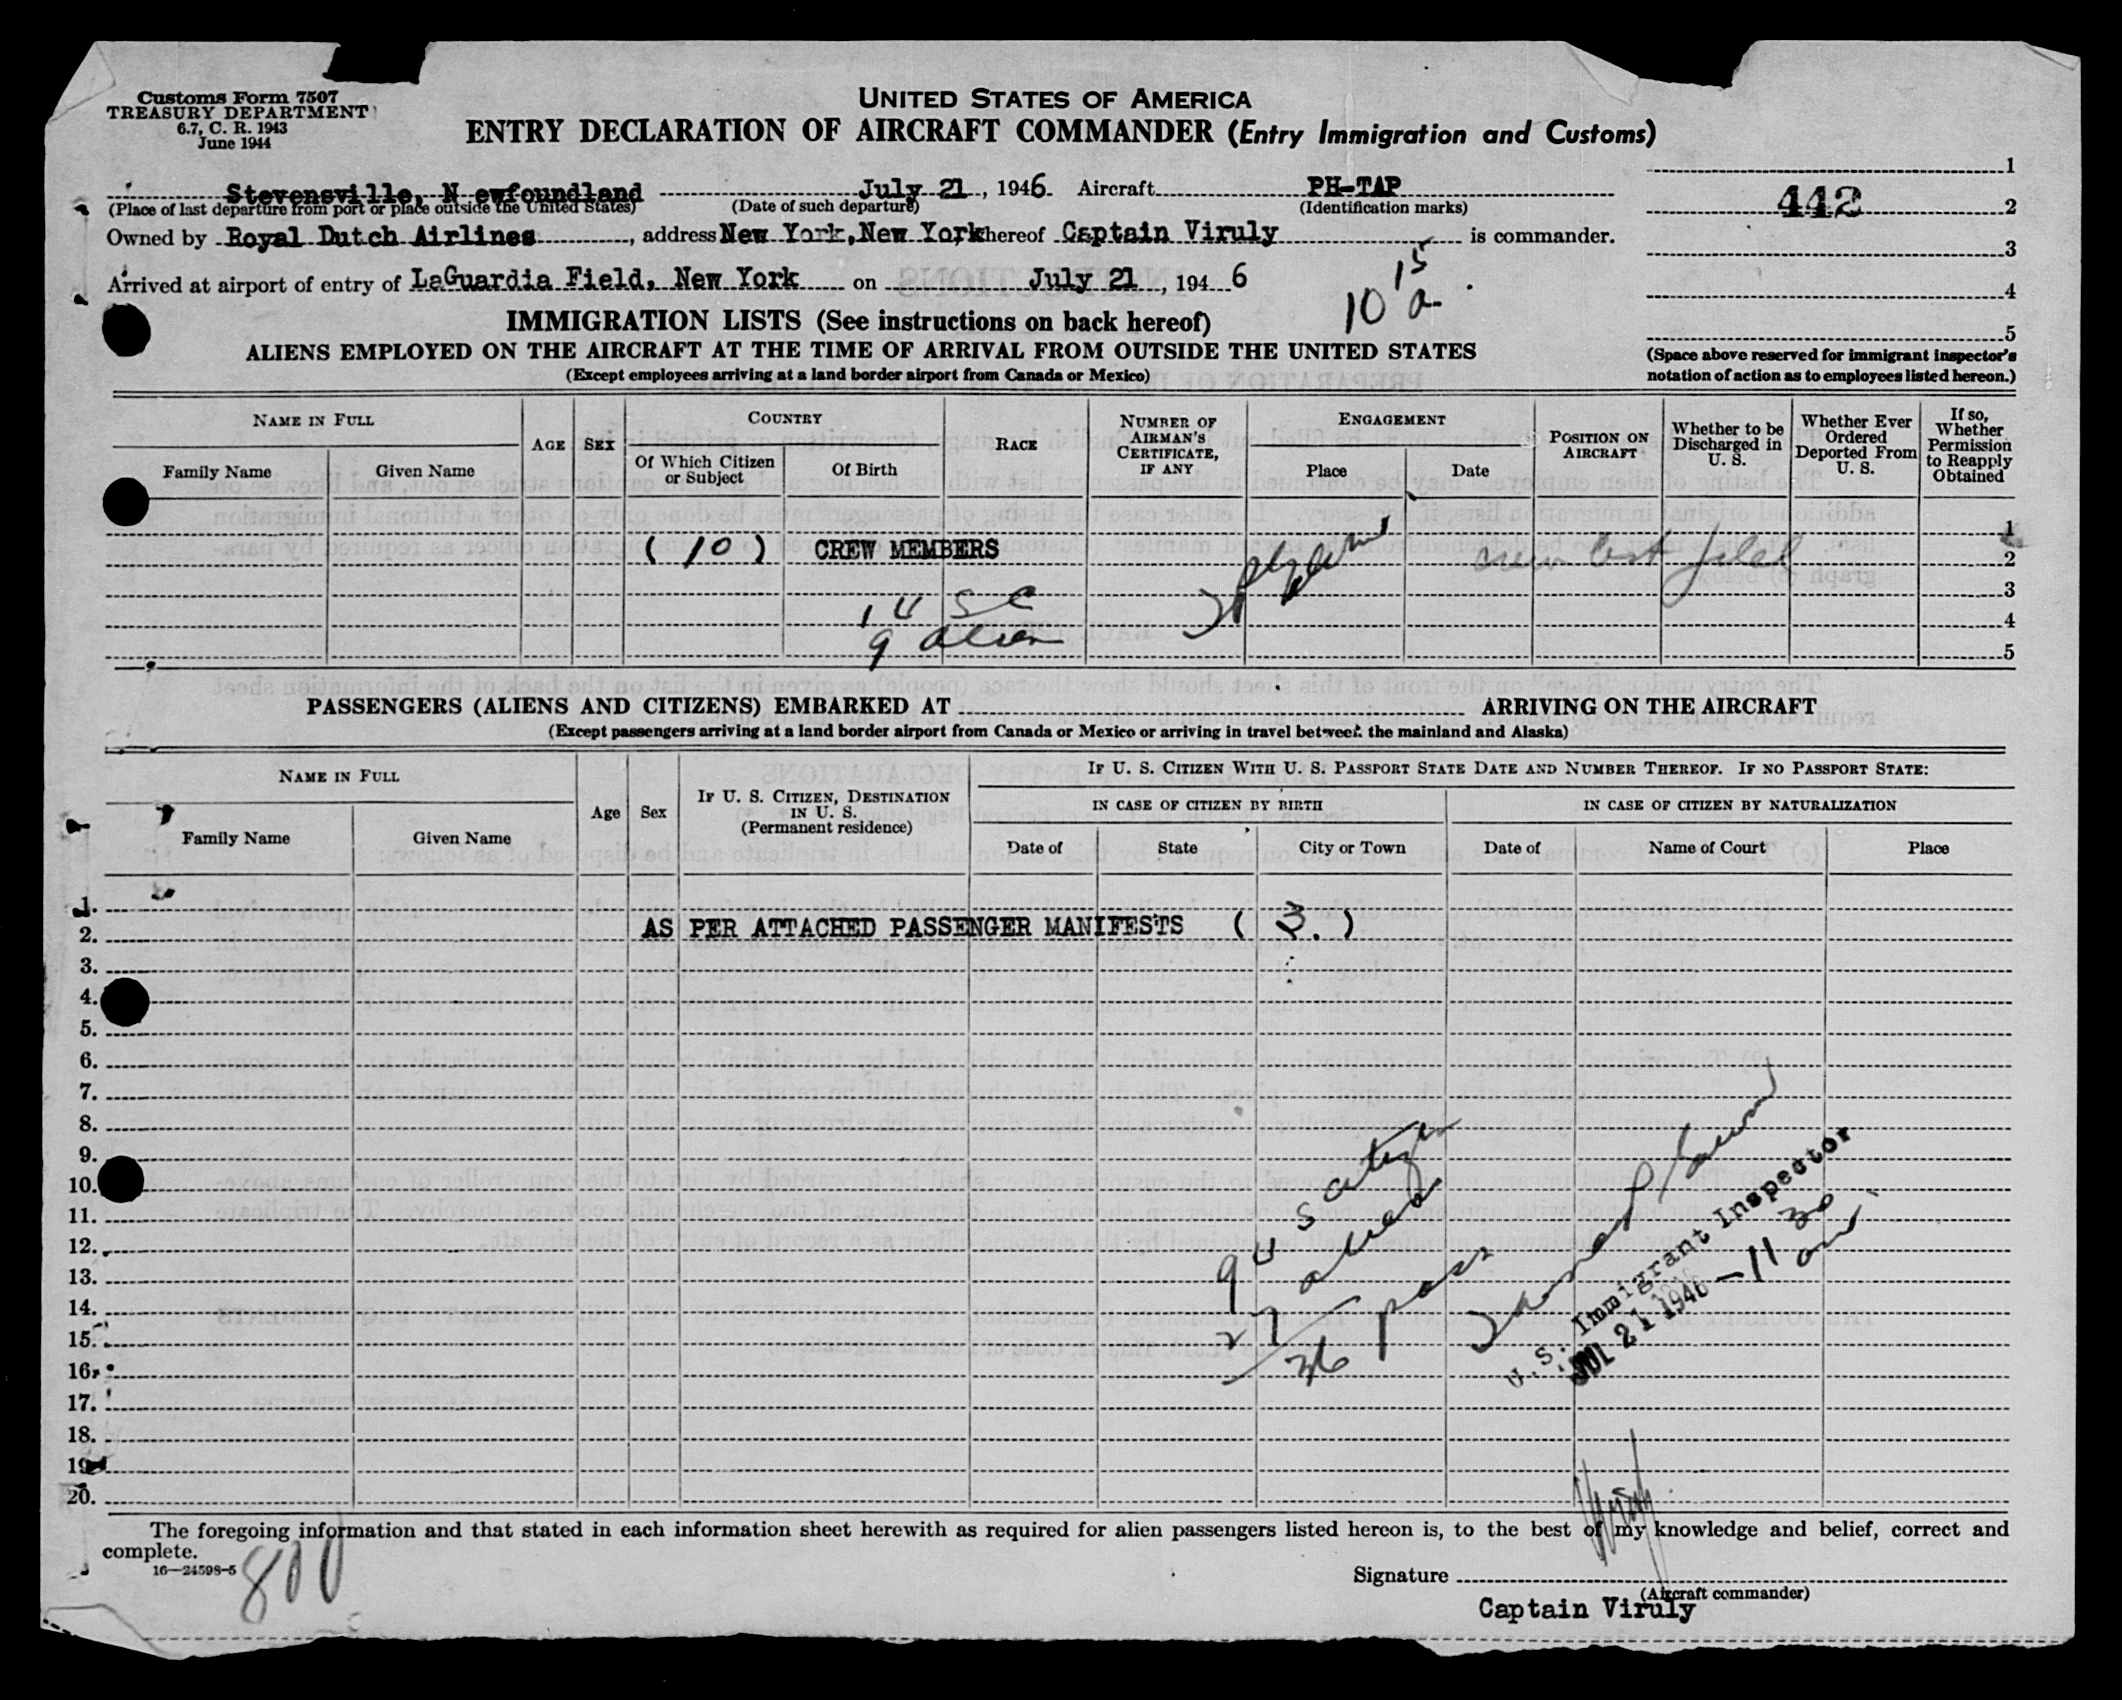 Customs Form 7507
TREASURY DEPARTMENT
6.7, C. R. 1943
June 1944
UNITED STATES OF AMERICA
ENTRY DECLARATION OF AIRCRAFT COMMANDER (Entry Immigration and Customs)
Stevensville, N ewfoundland July 21, 1946. Aircraft PH-TAP
(Place of last departure from port or place outside the United States) (Date of such departure) (Identification marks)
Owned by Royal Dutch Airlines, address New York, New York hereof Captain Viruly is commander.
Arrived at airport of entry of LaGuardia Field, New York on July 21, 194 6
10 15 a.
1
442 2
3
4
5
(Space above reserved for immigrant inspector's
notation of action as to employees listed hereon.)
IMMIGRATION LISTS (See instructions on back hereof)
ALIENS EMPLOYED ON THE AIRCRAFT AT THE TIME OF ARRIVAL FROM OUTSIDE THE UNITED STATES
(Except employees arriving at a land border airport from Canada or Mexico)
NAME IN FULL
Family Name Given Name
AGE SEX
COUNTRY
Of Which Citizen or Subject Of Birth
RACE
NUMBER OF AIRMAN'S CERTIFICATE, IF ANY
ENGAGEMENT
Place Date
POSITION ON AIRCRAFT
Whether to be Discharged in U. S.
Whether Ever Ordered Deported From U. S.
If so, Whether Permission to Reapply Obtained
1
( 10 ) CREW MEMBERS crew list filed 2
3
1 U S C 4
9 alien 5
PASSENGERS (ALIENS AND CITIZENS) EMBARKED AT ARRIVING ON THE AIRCRAFT
(Except passengers arriving at a land border airport from Canada or Mexico or arriving in travel between the mainland and Alaska)
NAME IN FULL
Family Name Given Name
Age Sex
IF U. S. CITIZEN, DESTINATION IN U. S.
(Permanent residence)
IF U. S. CITIZEN WITH U. S. PASSPORT STATE DATE AND NUMBER THEREOF. IF NO PASSPORT STATE:
IN CASE OF CITIZEN BY BIRTH IN CASE OF CITIZEN BY NATURALIZATION
Date of State City or Town Date of Name of Court Place
1.
2. AS PER ATTACHED PASSENGER MANIFESTS ( 3. )
3.
4.
5.
6.
7.
8.
9.
10.
11.
12.
13.
14.
15.
16.
17.
18.
19.
20.
9 U S citizen
27 aliens
36 pass
U. S. Immigrant Inspector
JUL 21 1946 - 11 30 am
The foregoing information and that stated in each information sheet herewith as required for alien passengers listed hereon is, to the best of my knowledge and belief, correct and
complete.
16—24598-5
800
Signature Viruly
(Aircraft commander)
Captain Viruly